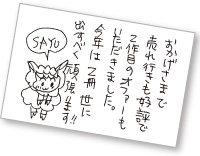 おかげさまで
売れ行きも好評で
2作目のオファーも
いただきました。
今年は2冊世に
出すべく頑張ります!!
SAYU